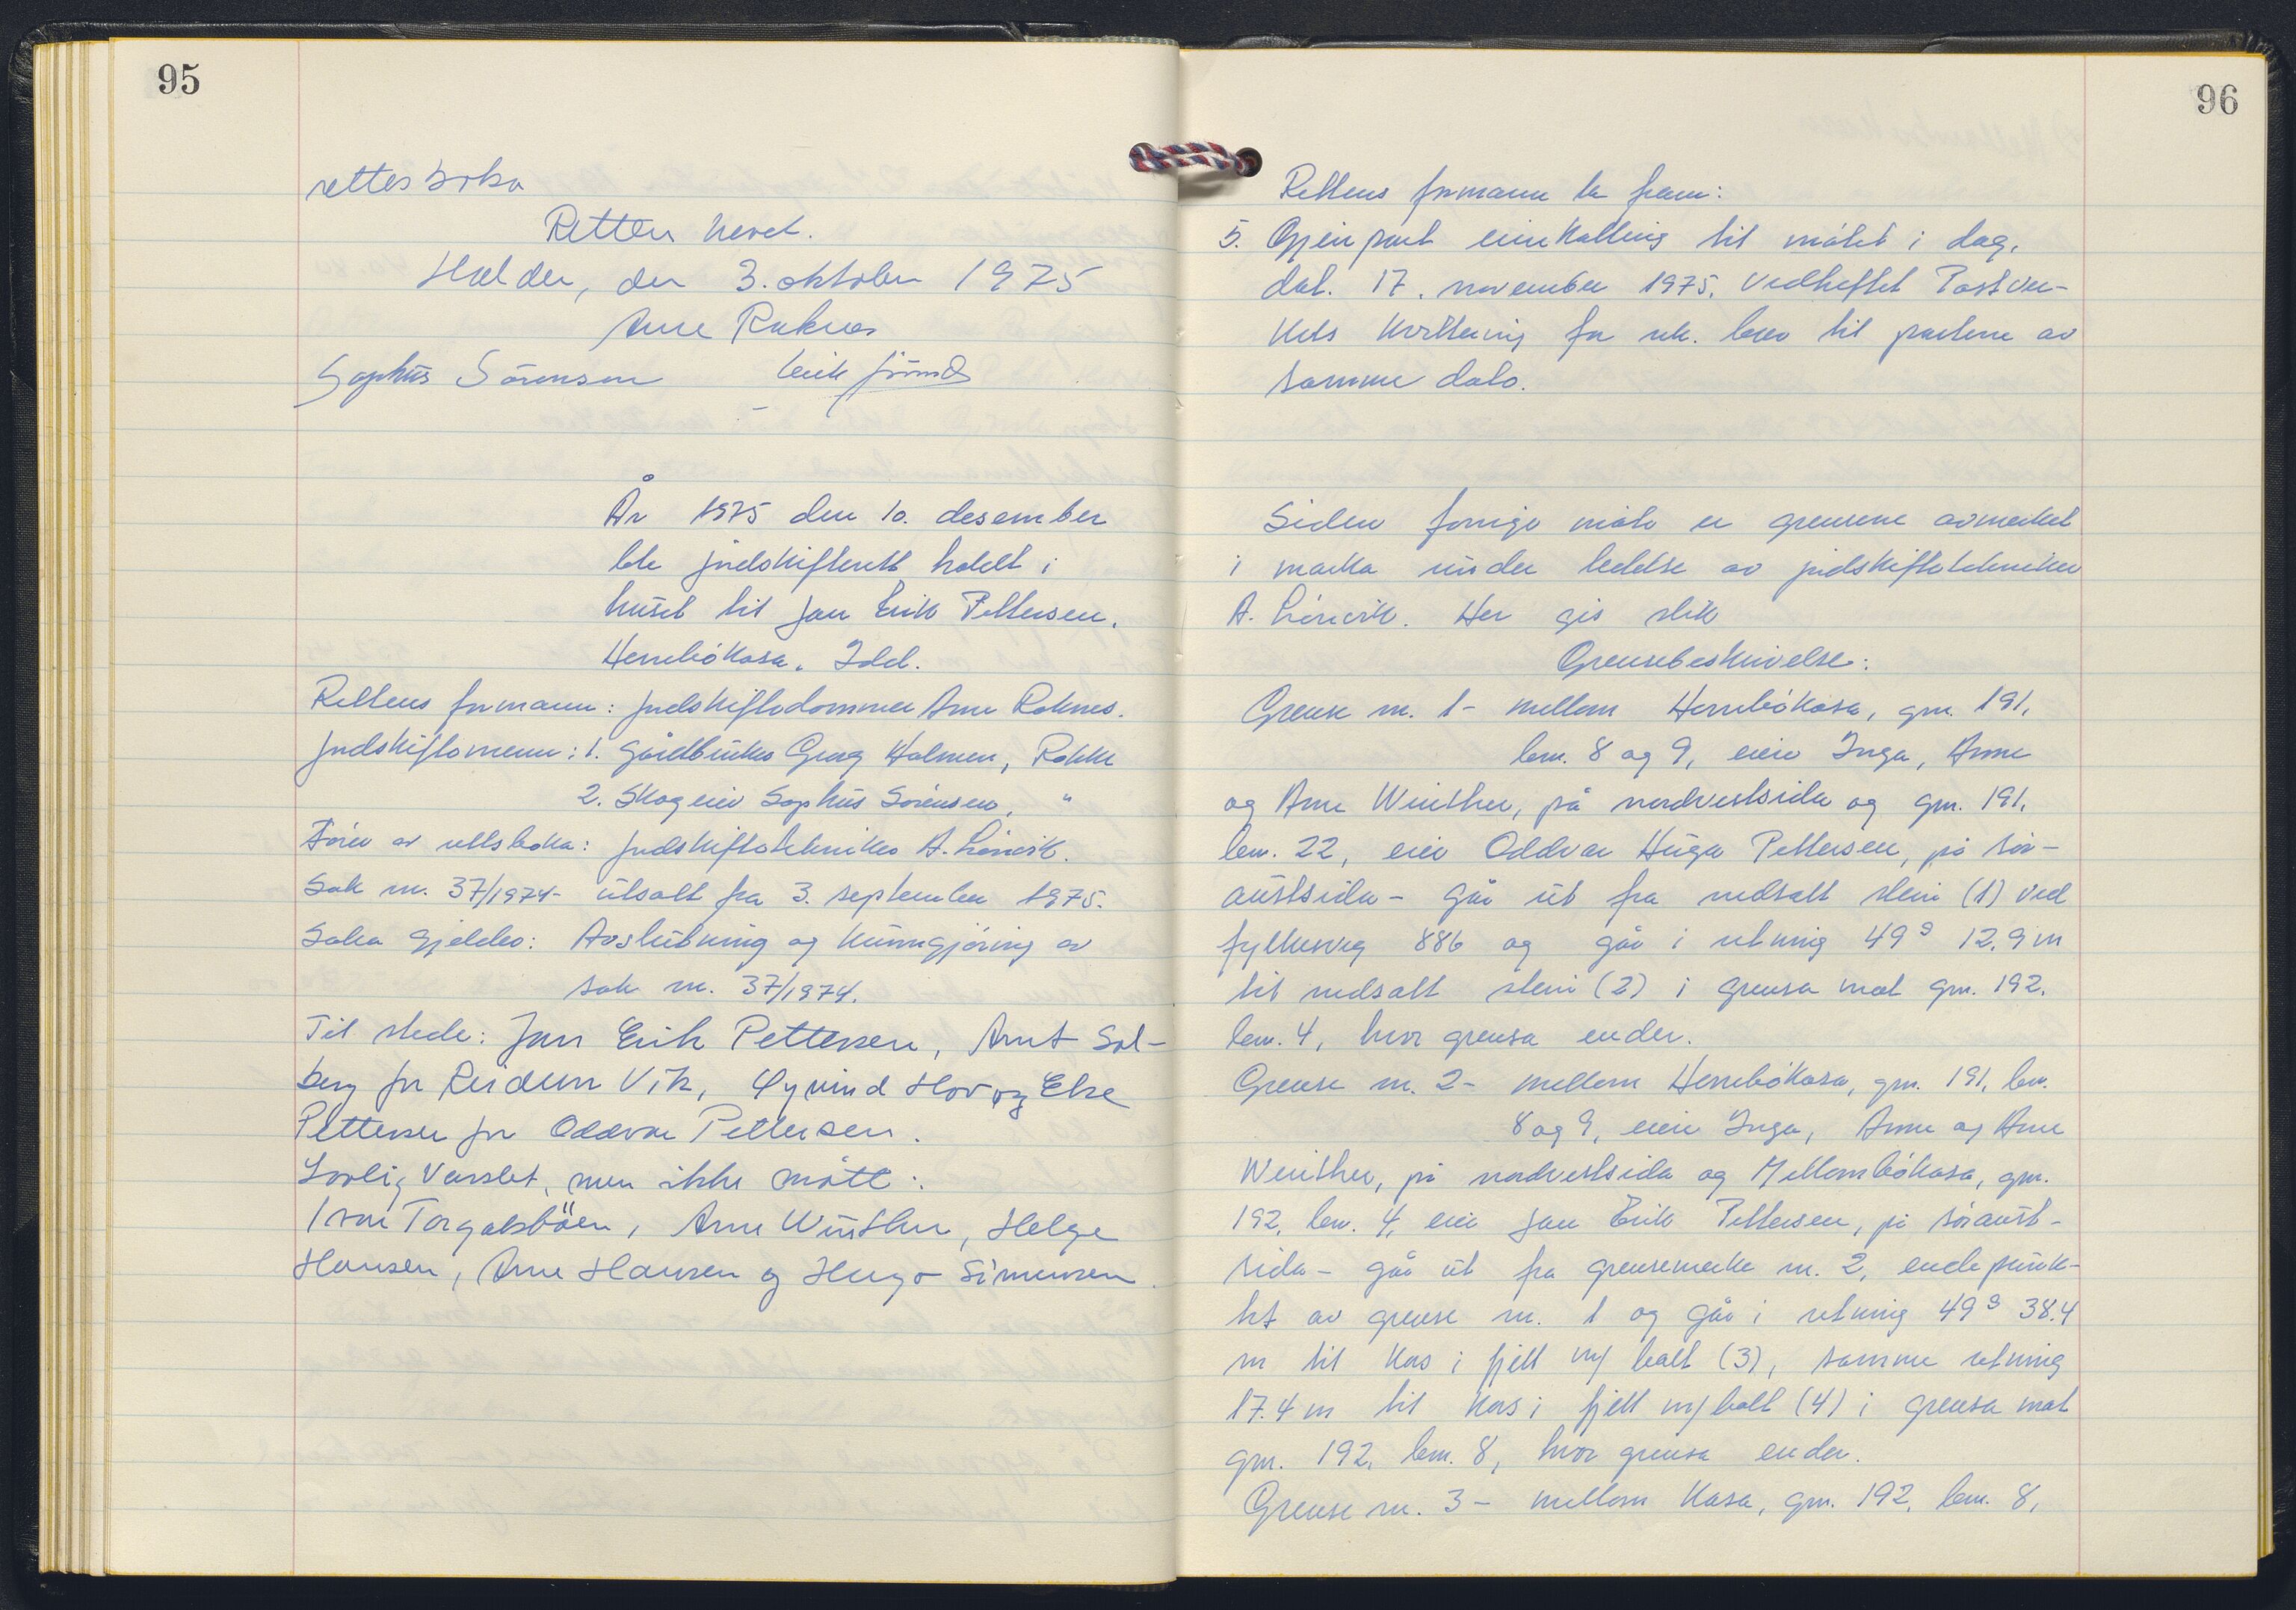 95
rettesboka
Retten hevet.
Halden, den 3. oktober 1975
Arne Raknes
Sophus Sörensen Erik
År 1975 den 10. desember
ble jordskifterett holdt i
huset til Jan Erik Pettersen,
Herrebøkasa, Idd.
Rettens formann: Jordskiftedommer Arne Raknes.
Jordskiftemenn: 1. Gårdbruker Georg Holmen, Rokke
2. Skogeier Sophus Sørensen, "
Fører av rettsboka: Jordskiftetekniker A. Lønevik.
Sak nr. 37/1974 - utsatt fra 3. september 1975.
Saka gjelder: Avslutning og kunngjøring av
sak nr. 37/1974.
Til stede: Jan Erik Pettersen, Arnt Sol-
berg for Reidun Vik, Øyvind Hov og Else
Pettersen for Oddvar Pettersen.
Lovlig varslet, men ikke møtt:
Ivar Torgalsbøen, Arne Winther, Helge
Hansen, Arne Hansen og Hugo Simensen.
96
Rettens formann la fram:
5. Gjenpart innkalling til møtet i dag,
dat. 17. november 1975. Vedheftet Postver-
kets kvittering for rek. brev til partene av
samme dato.
Siden forrige møte er grensene avmerket
i marka under ledelse av jordskiftetekniker
A. Lønevik. Her gis slik
Grensebeskrivelse:
Grense nr. 1 - mellom Herrebøkasa, gnr. 191,
bnr. 8 og 9, eier Inga, Anne
og Arne Winther, på nordvestsida og gnr. 191,
bnr. 22, eier Oddvar Hugo Pettersen, på sør-
austsida - går ut fra nedsatt stein (1) ved
fylkesveg 886 og går i retning 49g 12.9 m
til nedsatt stein (2) i grensa mot gnr. 192,
bnr. 4, hvor grensa ender.
Grense nr. 2 - mellom Herrebøkasa, gnr. 191, bnr.
8 og 9, eier Inga, Anne og Arne
Winther, på nordvestsida og Mellombøkasa, gnr.
192, bnr. 4, eier Jan Erik Pettersen, på søraust-
sida - går ut fra grensemerke nr. 2, endepunk-
tet av grense nr. 1 og går i retning 49g 38.4
m til kors i fjell m/ bolt (3), samme retning
17.4 m til kors i fjell m/ bolt (4) i grensa mot
gnr. 192, bnr. 8, hvor grensa ender.
Grense nr. 3 - mellom Kasa, gnr. 192, bnr. 8,